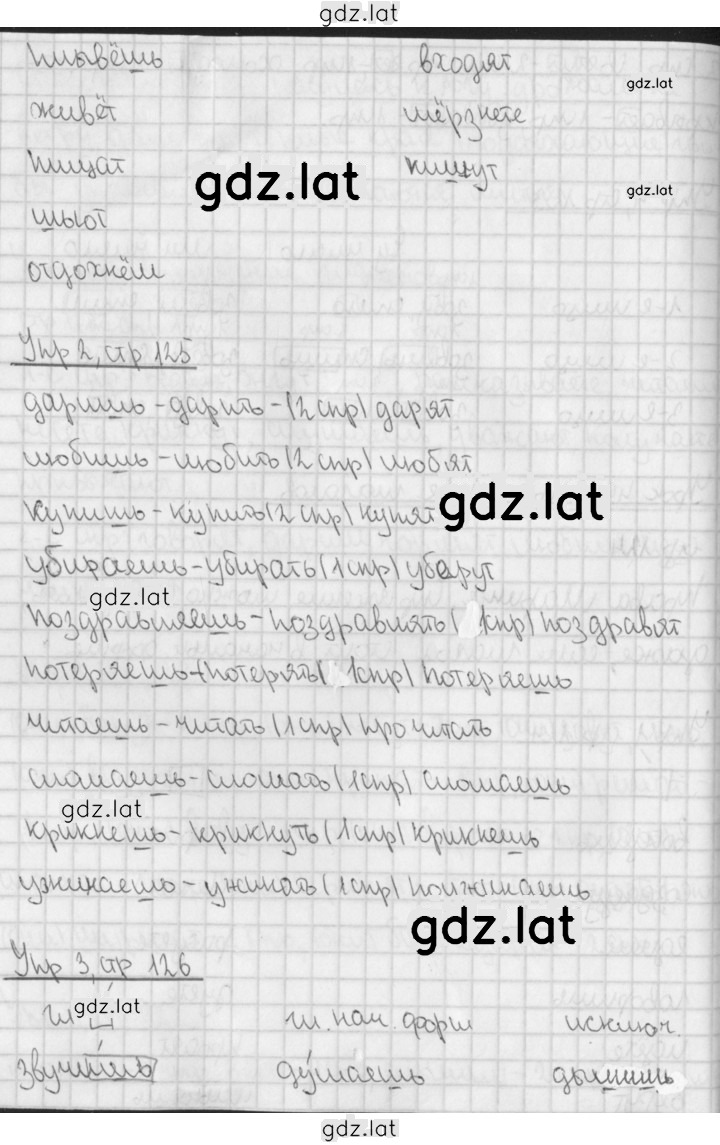 gdz.lat
плывёшь входят
gdz.lat
живёт мёрзнете
пищат пишут
gdz.lat
gdz.lat
шьют
отдохнём
Упр 2, стр 125
даришь - дарить - (2 спр) дарят
любишь - любить (2 спр) любят
купишь - купить (2 спр) купят
gdz.lat
убираешь - убирать (1 спр) уберут
gdz.lat
поздравляешь - поздравлять ( 1спр) поздравят
потеряешь - потерять ( 1спр) потеряешь
читаешь - читать (1 спр) прочитать
сломаешь - сломать (1 спр) сломаешь
gdz.lat
крикнешь - крикнуть (1 спр) крикнешь
ужинаешь - ужинать (1 спр)
gdz.lat
Упр 3, стр 126
gdz.lat
гл. нач. форм исключ.
звучишь думаешь дышишь
gdz.lat